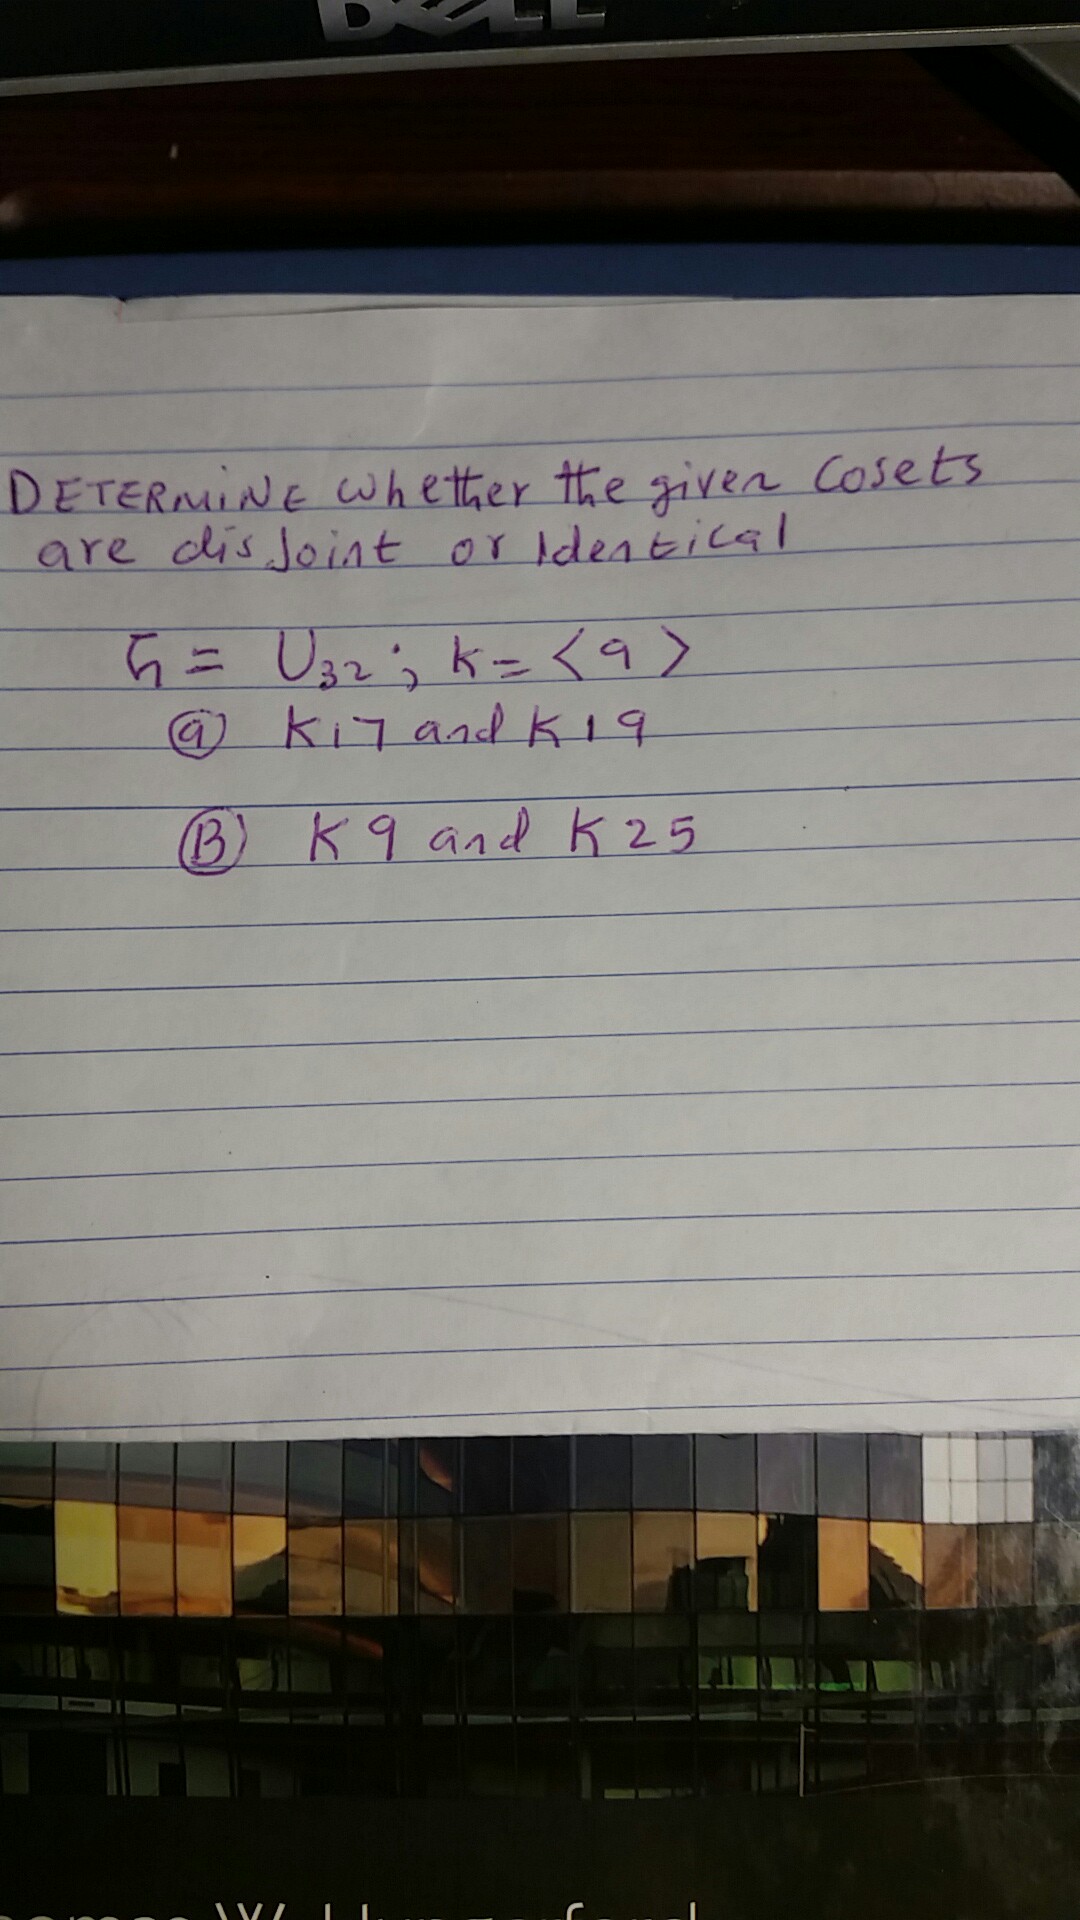 DELL
DETERMINE whether the given Cosets
are disjoint or Identical
G = U32; K = <9>
(a) K17 and K19
(B) K9 and K25
Hungerford